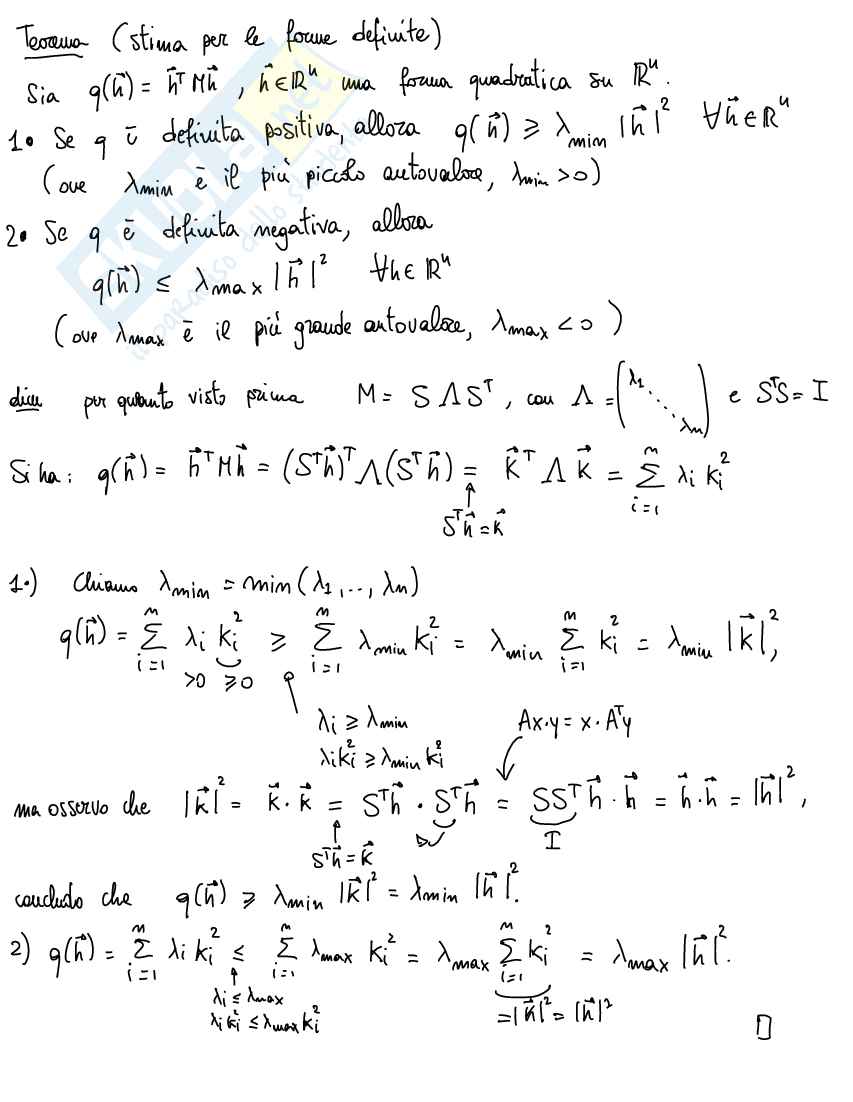 Teorema (stima per le forme definite)
Sia q(h⃗) = h⃗ᵀ M h⃗ , h⃗ ∈ ℝⁿ una forma quadratica su ℝⁿ.
1• Se q è definita positiva, allora q(h⃗) ⩾ λmin |h⃗|² ∀h⃗ ∈ ℝⁿ
(ove λmin è il più piccolo autovalore, λmin > 0)
2• Se q è definita negativa, allora
q(h⃗) ≤ λmax |h⃗|² ∀h ∈ ℝⁿ
(ove λmax è il più grande autovalore, λmax < 0)
dim per quanto visto prima M = S Λ Sᵀ , con Λ = (λ1 ⋱ λn) e SᵀS = I
Si ha: q(h⃗) = h⃗ᵀ M h⃗ = (Sᵀh⃗)ᵀ Λ (Sᵀh⃗) = k⃗ᵀ Λ k⃗ = Σ_{i=1}^{n} λi ki²
↑
Sᵀh⃗ = k⃗
1•) Chiamo λmin = min(λ1, .., λn)
q(h⃗) = Σ_{i=1}^{n} λi ki² ⩾ Σ_{i=1}^{n} λmin ki² = λmin Σ_{i=1}^{n} ki² = λmin |k⃗|²,
>0 ⩾0
λi ⩾ λmin Ax·y = x·Aᵀy
λi ki² ⩾ λmin ki²
ma osservo che |k⃗|² = k⃗·k⃗ = Sᵀh⃗ · Sᵀh⃗ = SSᵀh⃗·h⃗ = h⃗·h⃗ = |h⃗|²,
↑ I
Sᵀh⃗ = k⃗
concludo che q(h⃗) ⩾ λmin |k⃗|² = λmin |h⃗|².
2) q(h⃗) = Σ_{i=1}^{n} λi ki² ≤ Σ_{i=1}^{n} λmax ki² = λmax Σ_{i=1}^{n} ki² = λmax |h⃗|².
↑
λi ≤ λmax
λi ki² ≤ λmax ki² = |k⃗|² = |h⃗|² □
SKUOLA.net
il paradiso dello studente